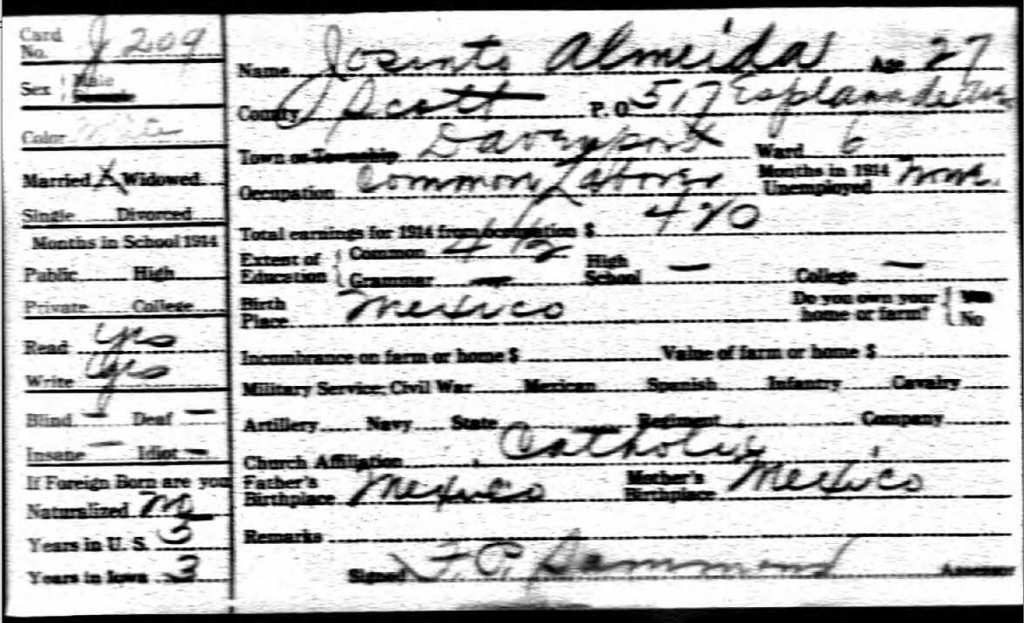 Card No. J 209
Sex Male
Color White
Married X Widowed
Single Divorced
Months in School 1914
Public High
Private College
Read yes
Write yes
Blind – Deaf –
Insane – Idiot –
If Foreign Born are you
Naturalized No
Years in U. S. 3
Years in Iowa 3
Name Josinto Almeida Age 27
County Scott P. O. 517 Esplanade Ave
Town or Township Davenport Ward 6
Occupation Common Laborer Months in 1914 Unemployed None
Total earnings for 1914 from occupation $ 420
Extent of Education Common 4 1/2 Grammar – High School – College –
Birth Place Mexico Do you own your home or farm? Yes No
Incumbrance on farm or home $ Value of farm or home $
Military Service; Civil War Mexican Spanish Infantry Cavalry
Artillery Navy State Regiment Company
Church Affiliation Catholic
Father's Birthplace Mexico Mother's Birthplace Mexico
Remarks
Signed F. C. Assessor